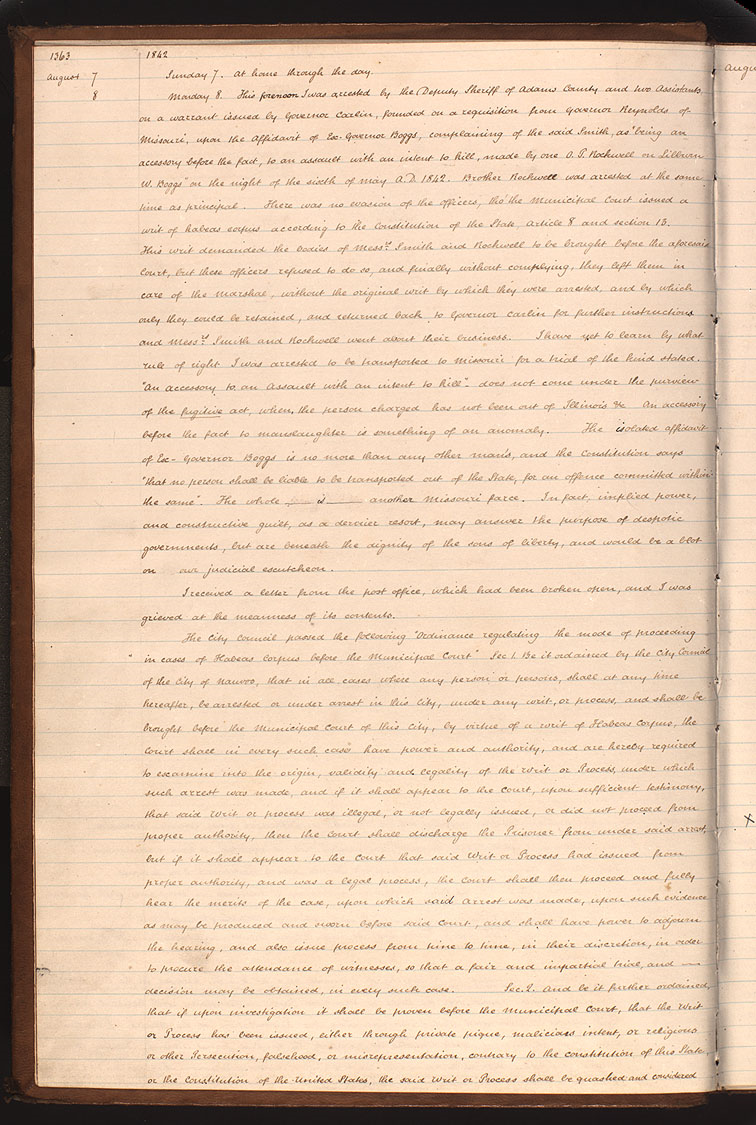 1363 1842
August 7 Sunday 7. At home through the day.
8 Monday 8. This forenoon I was arrested by the Deputy Sheriff of Adams County and two Assistants,
on a warrant issued by Governor Carlin, founded on a requisition from Governor Reynolds of
Missouri, upon the Affidavit of Ex-Governor Boggs, complaining of the said Smith, as "being an
accessory before the fact, to an assault with an intent to kill, made by one O. P. Rockwell on Lilburn
W. Boggs" on the night of the sixth of May A.D. 1842. Brother Rockwell was arrested at the same
time as principal. There was no evasion of the officers, tho' the Municipal Court issued a
writ of habeas corpus according to the Constitution of the State, Article 8 and section 13.
This writ demanded the bodies of Messrs. Smith and Rockwell to be brought before the aforesaid
Court, but these officers refused to do so, and finally without complying, they left them in
care of the Marshal, without the original writ by which they were arrested, and by which
only they could be retained, and returned back to Governor Carlin for further instructions
and Messrs. Smith and Rockwell went about their business. I have yet to learn by what
rule of right I was arrested to be transported to Missouri for a trial of the kind stated.
"An accessory to an Assault with an intent to kill" does not come under the purview
of the fugitive act, when the person charged has not been out of Illinois &c An accessory
before the fact to manslaughter is something of an anomaly. The isolated affidavit
of Ex-Governor Boggs is no more than any other man's, and the Constitution says
"that no person shall be liable to be transported out of the State, for an offence committed within
the same". The whole is another Missouri farce. In fact, implied power,
and constructive guilt, as a dernier resort, may answer the purpose of despotic
governments, but are beneath the dignity of the sons of liberty, and would be a blot
on our judicial escutcheon.
I received a letter from the post office, which had been broken open, and I was
grieved at the meanness of its contents.
The City Council passed the following "Ordinance regulating the mode of proceeding
in cases of Habeas Corpus before the Municipal Court" Sec 1. Be it ordained by the City Council
of the City of Nauvoo, that in all cases where any person or persons, shall at any time
hereafter, be arrested or under arrest in this City, under any writ, or process, and shall be
brought before the Municipal Court of this City, by virtue of a writ of Habeas Corpus, the
Court shall in every such case have power and authority, and are hereby required
to examine into the origin, validity and legality of the Writ or Process, under which
such arrest was made, and if it shall appear to the Court, upon sufficient testimony,
that said Writ or process was illegal, or not legally issued, or did not proceed from
proper authority, then the Court shall discharge the Prisoner from under said arrest,
but if it shall appear to the Court that said Writ or Process had issued from
proper authority, and was a legal process, the Court shall then proceed and fully
hear the merits of the case, upon which said Arrest was made, upon such evidence
as may be produced and sworn before said Court, and shall have power to adjourn
the hearing, and also issue process from time to time, in their discretion, in order
to procure the attendance of witnesses, so that a fair and impartial trial, and
decision may be obtained, in every such case. Sec. 2. And be it further ordained,
that if upon investigation it shall be proven before the Municipal Court, that the Writ
or Process has been issued, either through private pique, malicious intent, or religious
or other Persecution, falsehood, or misrepresentation, contrary to the constitution of this State,
or the Constitution of the United States, the said Writ or Process shall be quashed and considered
Augu
X